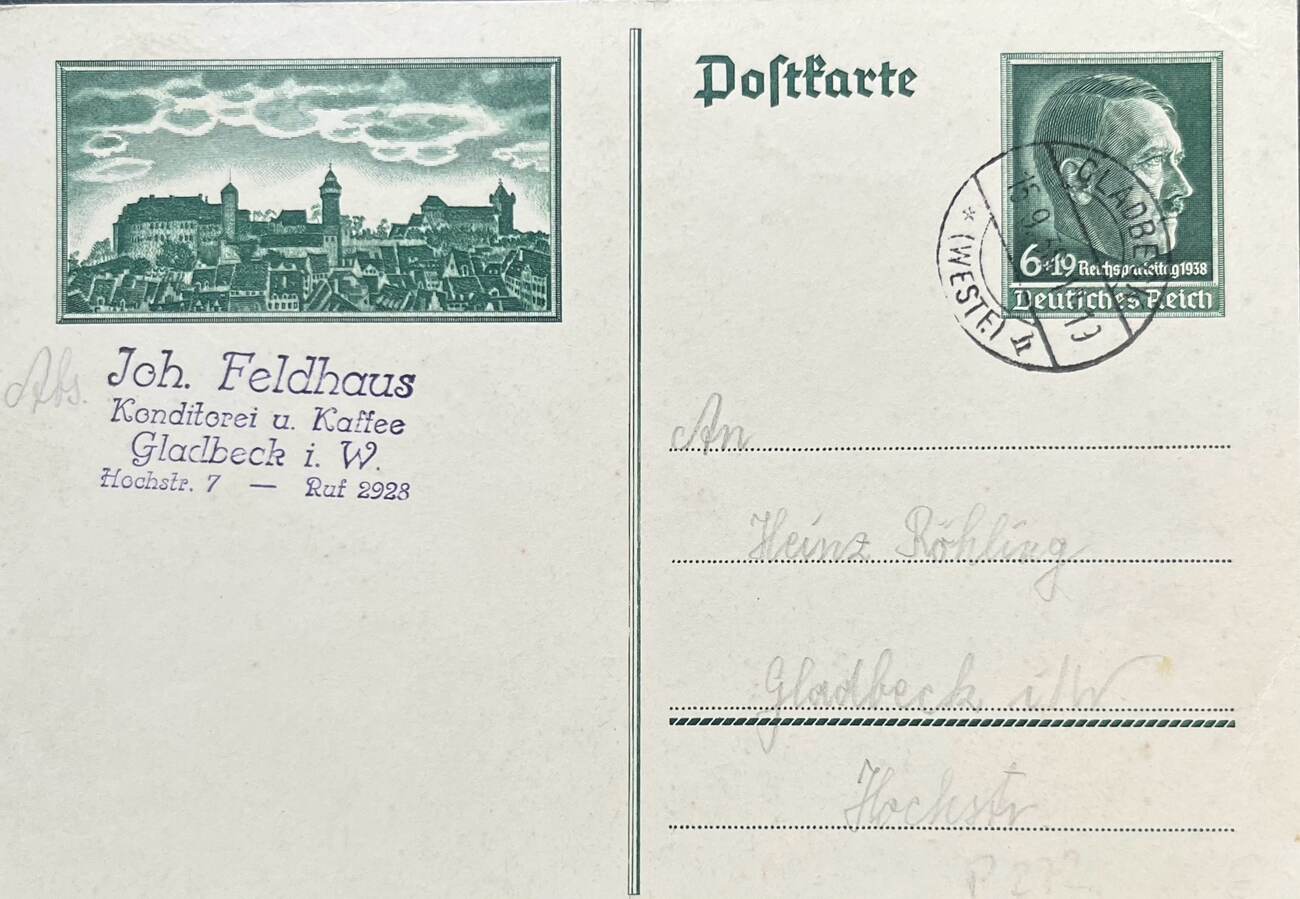 Postkarte
6+19 Reichsparteitag 1938
Deutsches Reich
GLADBECK
* (WESTF.) h
Abs. Joh. Feldhaus
Konditorei u. Kaffee
Gladbeck i. W.
Hochstr. 7 — Ruf 2928
An
Heinz Röhling
Gladbeck i/W
Hochstr